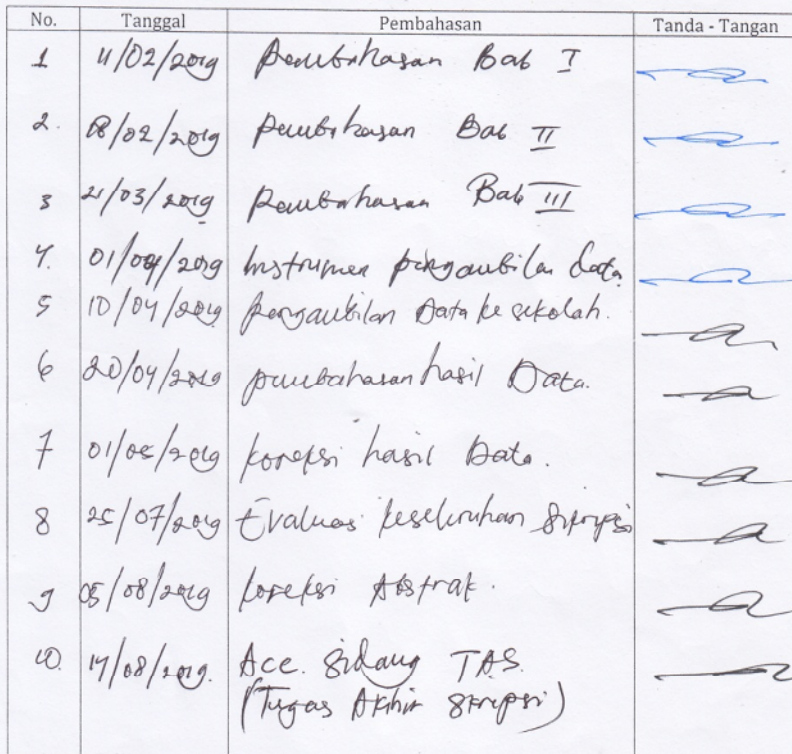 No. Tanggal Pembahasan Tanda - Tangan
1 11/02/2019 pembahasan Bab I
2. 18/02/2019 pembahasan Bab II
3 21/03/2019 pembahasan Bab III
4. 01/04/2019 Instrumen pengambilan data
5 10/04/2019 pengambilan Data ke sekolah.
6 20/04/2019 pembahasan hasil Data.
7 01/05/2019 koreksi hasil Data.
8 25/07/2019 Evaluasi keseluruhan skripsi
9 05/08/2019 koreksi Abstrak.
10. 14/08/2019. Acc. Sidang TAS.
(Tugas Akhir Skripsi)